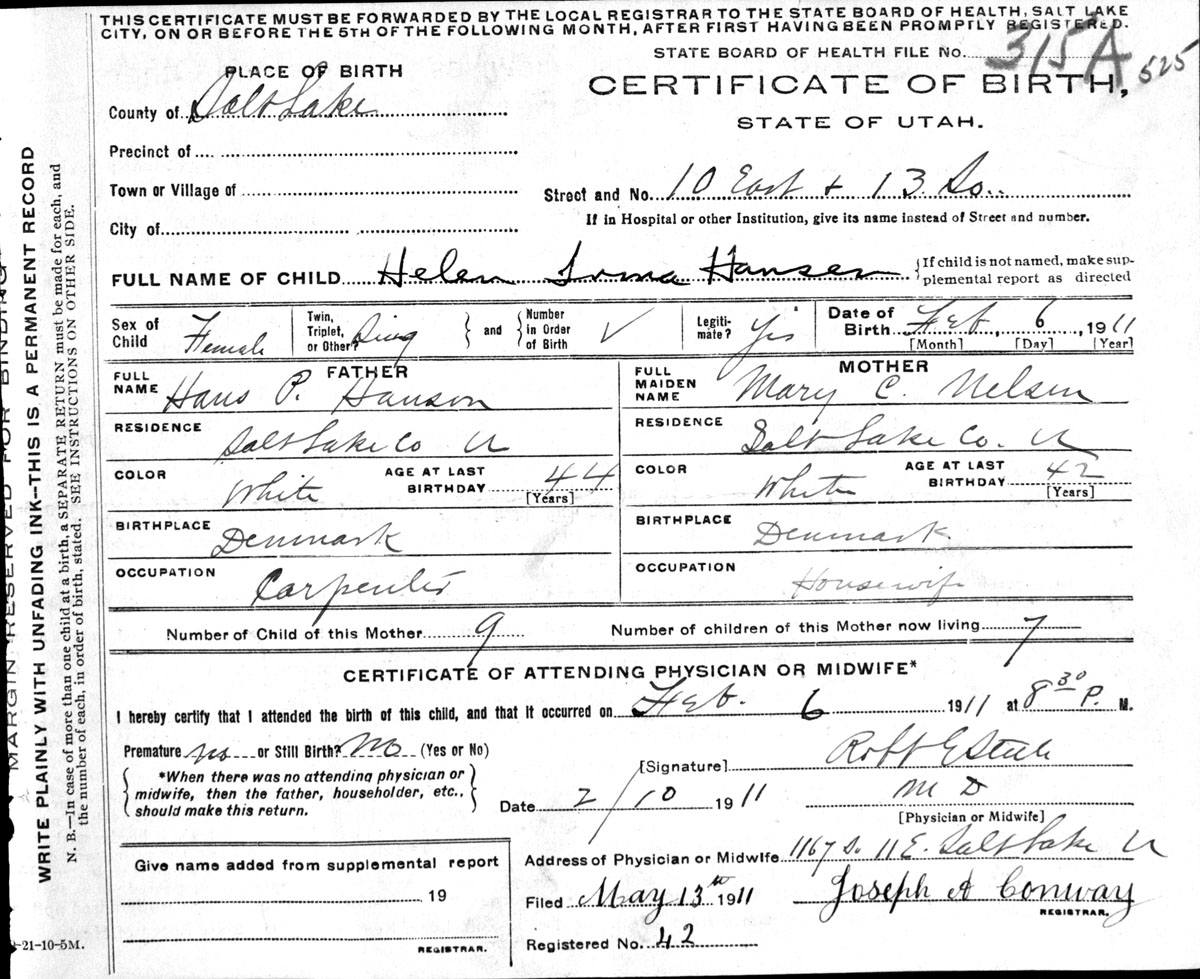 THIS CERTIFICATE MUST BE FORWARDED BY THE LOCAL REGISTRAR TO THE STATE BOARD OF HEALTH, SALT LAKE
CITY, ON OR BEFORE THE 5TH OF THE FOLLOWING MONTH, AFTER FIRST HAVING BEEN PROMPTLY REGISTERED.
STATE BOARD OF HEALTH FILE No. 315A 525
PLACE OF BIRTH
CERTIFICATE OF BIRTH,
STATE OF UTAH.
County of Salt Lake
Precinct of
Town or Village of
Street and No. 10 East + 13 So.
If in Hospital or other Institution, give its name instead of Street and number.
City of
FULL NAME OF CHILD Helen Irma Hansen {If child is not named, make sup-
plemental report as directed
Sex of Child Female Twin, Triplet, or Other? Sing and Number in Order of Birth ✓ Legiti-mate? Yes Date of Birth Feb, 6, 1911
[Month] [Day] [Year]
FATHER
FULL NAME Hans P. Hanson
RESIDENCE Salt Lake Co U
COLOR White AGE AT LAST BIRTHDAY 44 [Years]
BIRTHPLACE Denmark
OCCUPATION Carpenter
MOTHER
FULL MAIDEN NAME Mary C. Nelsen
RESIDENCE Salt Lake Co. U
COLOR White AGE AT LAST BIRTHDAY 42 [Years]
BIRTHPLACE Denmark
OCCUPATION Housewife
Number of Child of this Mother 9 Number of children of this Mother now living 7
CERTIFICATE OF ATTENDING PHYSICIAN OR MIDWIFE*
I hereby certify that I attended the birth of this child, and that it occurred on Feb. 6 1911 at 8 30 P. M.
Premature no or Still Birth? No (Yes or No)
*When there was no attending physician or
midwife, then the father, householder, etc.,
should make this return.
[Signature] Robt E Steele
M D
Date 2/10 1911
[Physician or Midwife]
Give name added from supplemental report
19
REGISTRAR.
Address of Physician or Midwife 1167 S. 11 E. Salt Lake U
Filed May 13th 1911 Joseph A Conway
REGISTRAR.
Registered No. 42
-21-10-5M.
MARGIN RESERVED FOR BINDING
WRITE PLAINLY WITH UNFADING INK-THIS IS A PERMANENT RECORD
N. B.—In case of more than one child at a birth, a SEPARATE RETURN must be made for each, and
the number of each, in order of birth, stated. SEE INSTRUCTIONS ON OTHER SIDE.